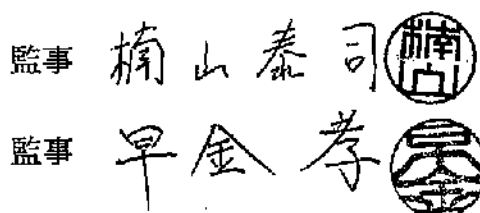 監事 楠山泰司 楠山
監事 早金孝 早金